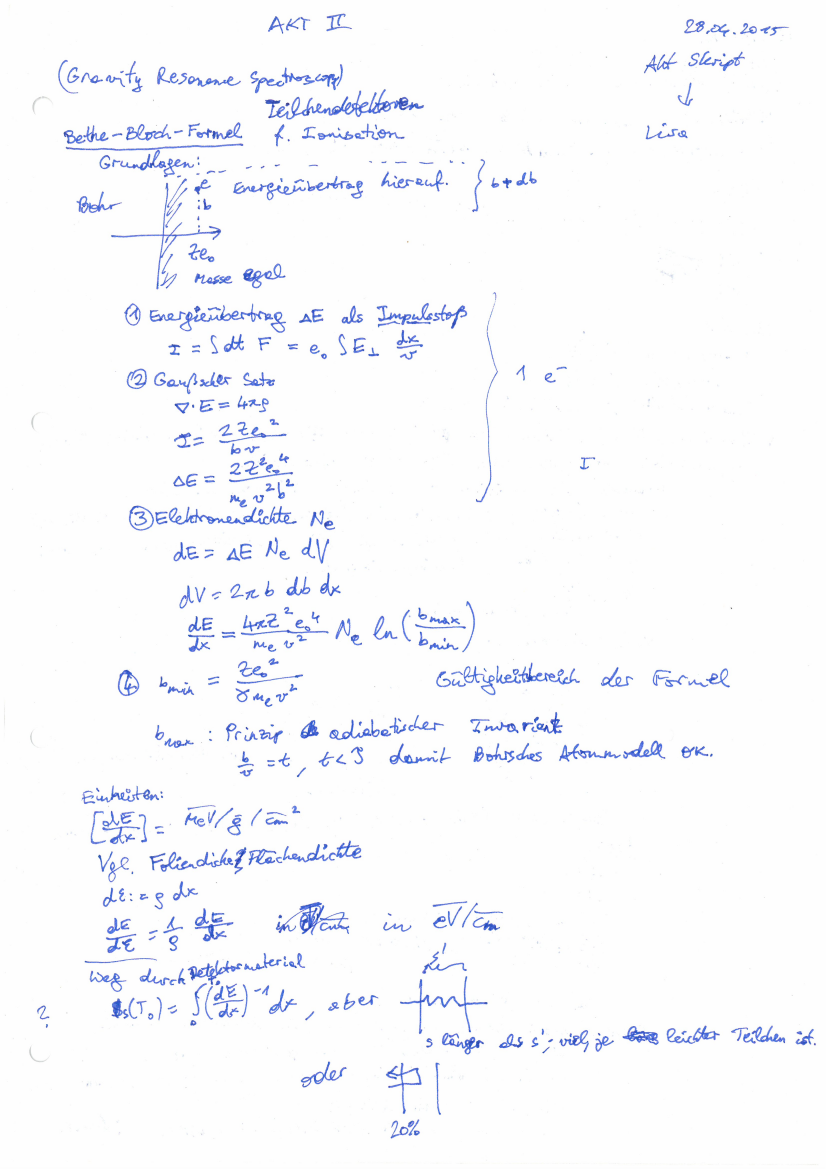 AKT II
28.04.2015
Akt Skript
↓
(Gravity Resonance Spectroscopy)
Teilchendetektoren
Bethe-Bloch-Formel f. Ionisation
Grundlagen:
e Energieübertrag hierauf. } b+db
Bohr
b
Ze₀
Masse egal
① Energieübertrag ΔE als Impulsstoß
I = ∫dt F = e₀ ∫E⊥ dx/v
② Gaußscher Satz
1 e⁻
∇·E = 4πρ
I = 2Ze₀²/bv
I
ΔE = 2Z²e₀⁴/mₑv²b²
③ Elektronendichte Nₑ
dE = ΔE Nₑ dV
dV = 2πb db dx
dE/dx = 4πZ²e₀⁴/mₑv² Nₑ ln(bmax/bmin)
④ bmin = Ze₀²/γmₑv²
Gültigkeitsbereich der Formel
bmax : Prinzip adiabatischer Invarianz
b/v = t, t<τ damit Bohrsches Atommodell ok.
Einheiten:
[dE/dx] = MeV/g/cm²
Vgl. Foliendicke, Flächendichte
dε := ρ dx
dE/dε = 1/ρ dE/dx in eV/cm
Weg durch Detektormaterial
s'
? s(T₀) = ∫₀^T₀ (dE/dx)⁻¹ dx, aber
s länger als s', viel, je leichter Teilchen ist.
oder
20%